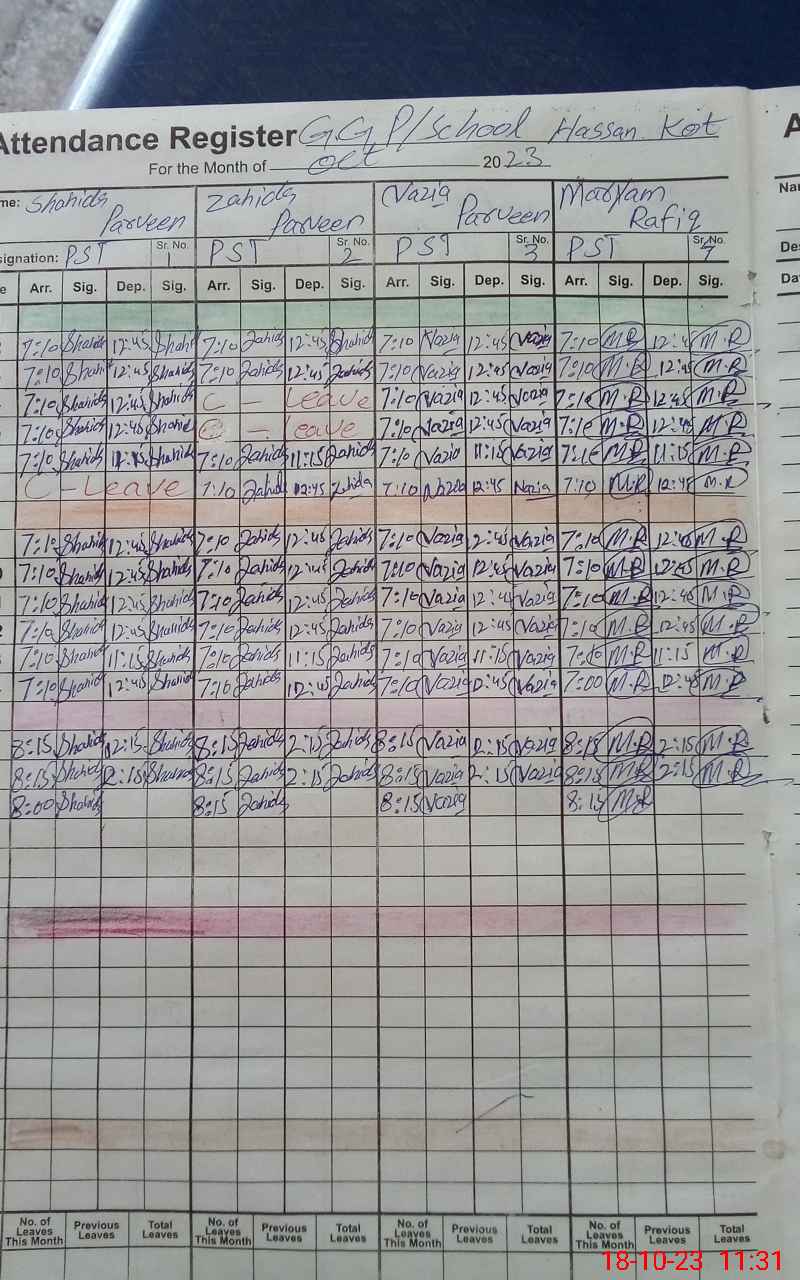 Attendance Register GGP/School Hassan Kot
For the Month of Oct 2023
me: Shahida Parveen Zahida Parveen Nazia Parveen Maryam Rafiq
signation: PST Sr. No. 1 PST Sr. No. 2 PST Sr. No. 3 PST Sr. No. 7
Arr. Sig. Dep. Sig. Arr. Sig. Dep. Sig. Arr. Sig. Dep. Sig. Arr. Sig. Dep. Sig.
7:10 Shahida 12:45 Shahida 7:10 Zahida 12:45 Shahida 7:10 Nazia 12:45 Nazia 7:10 M.R 12:45 M.R
7:10 Shahida 12:45 Shahida 7:10 Zahida 12:45 Zahida 7:10 Nazia 12:45 Nazia 7:10 M.R 12:45 M.R
7:10 Shahida 12:45 Shahida C - Leave 7:10 Nazia 12:45 Nazia 7:10 M.R 12:45 M.R
7:10 Shahida 12:45 Shahida C - Leave 7:10 Nazia 12:45 Nazia 7:10 M.R 12:45 M.R
7:10 Shahida 11:15 Shahida 7:10 Zahida 11:15 Zahida 7:10 Nazia 11:15 Nazia 7:10 M.R 11:15 M.R
C - Leave 7:10 Zahida 12:45 Zahida 7:10 Nazia 12:45 Nazia 7:10 M.R 12:45 M.R
7:10 Shahida 12:45 Shahida 7:10 Zahida 12:45 Zahida 7:10 Nazia 12:45 Nazia 7:10 M.R 12:45 M.R
7:10 Shahida 12:45 Shahida 7:10 Zahida 12:45 Zahida 7:10 Nazia 12:45 Nazia 7:10 M.R 12:45 M.R
7:10 Shahida 12:45 Shahida 7:10 Zahida 12:45 Zahida 7:10 Nazia 12:45 Nazia 7:10 M.R 12:45 M.R
7:10 Shahida 12:45 Shahida 7:10 Zahida 12:45 Zahida 7:10 Nazia 12:45 Nazia 7:10 M.R 12:45 M.R
7:10 Shahida 11:15 Shahida 7:10 Zahida 11:15 Zahida 7:10 Nazia 11:15 Nazia 7:10 M.R 11:15 M.R
7:10 Shahida 12:45 Shahida 7:10 Zahida 12:45 Zahida 7:10 Nazia 12:45 Nazia 7:00 M.R 12:45 M.R
8:15 Shahida 2:15 Shahida 8:15 Zahida 2:15 Zahida 8:15 Nazia 2:15 Nazia 8:15 M.R 2:15 M.R
8:15 Shahida 2:15 Shahida 8:15 Zahida 2:15 Zahida 8:15 Nazia 2:15 Nazia 8:15 M.R 2:15 M.R
8:00 Shahida 8:15 Zahida 8:15 Nazia 8:15 M.R
No. of Leaves This Month Previous Leaves Total Leaves No. of Leaves This Month Previous Leaves Total Leaves No. of Leaves This Month Previous Leaves Total Leaves No. of Leaves This Month Previous Leaves Total Leaves
18-10-23 11:31